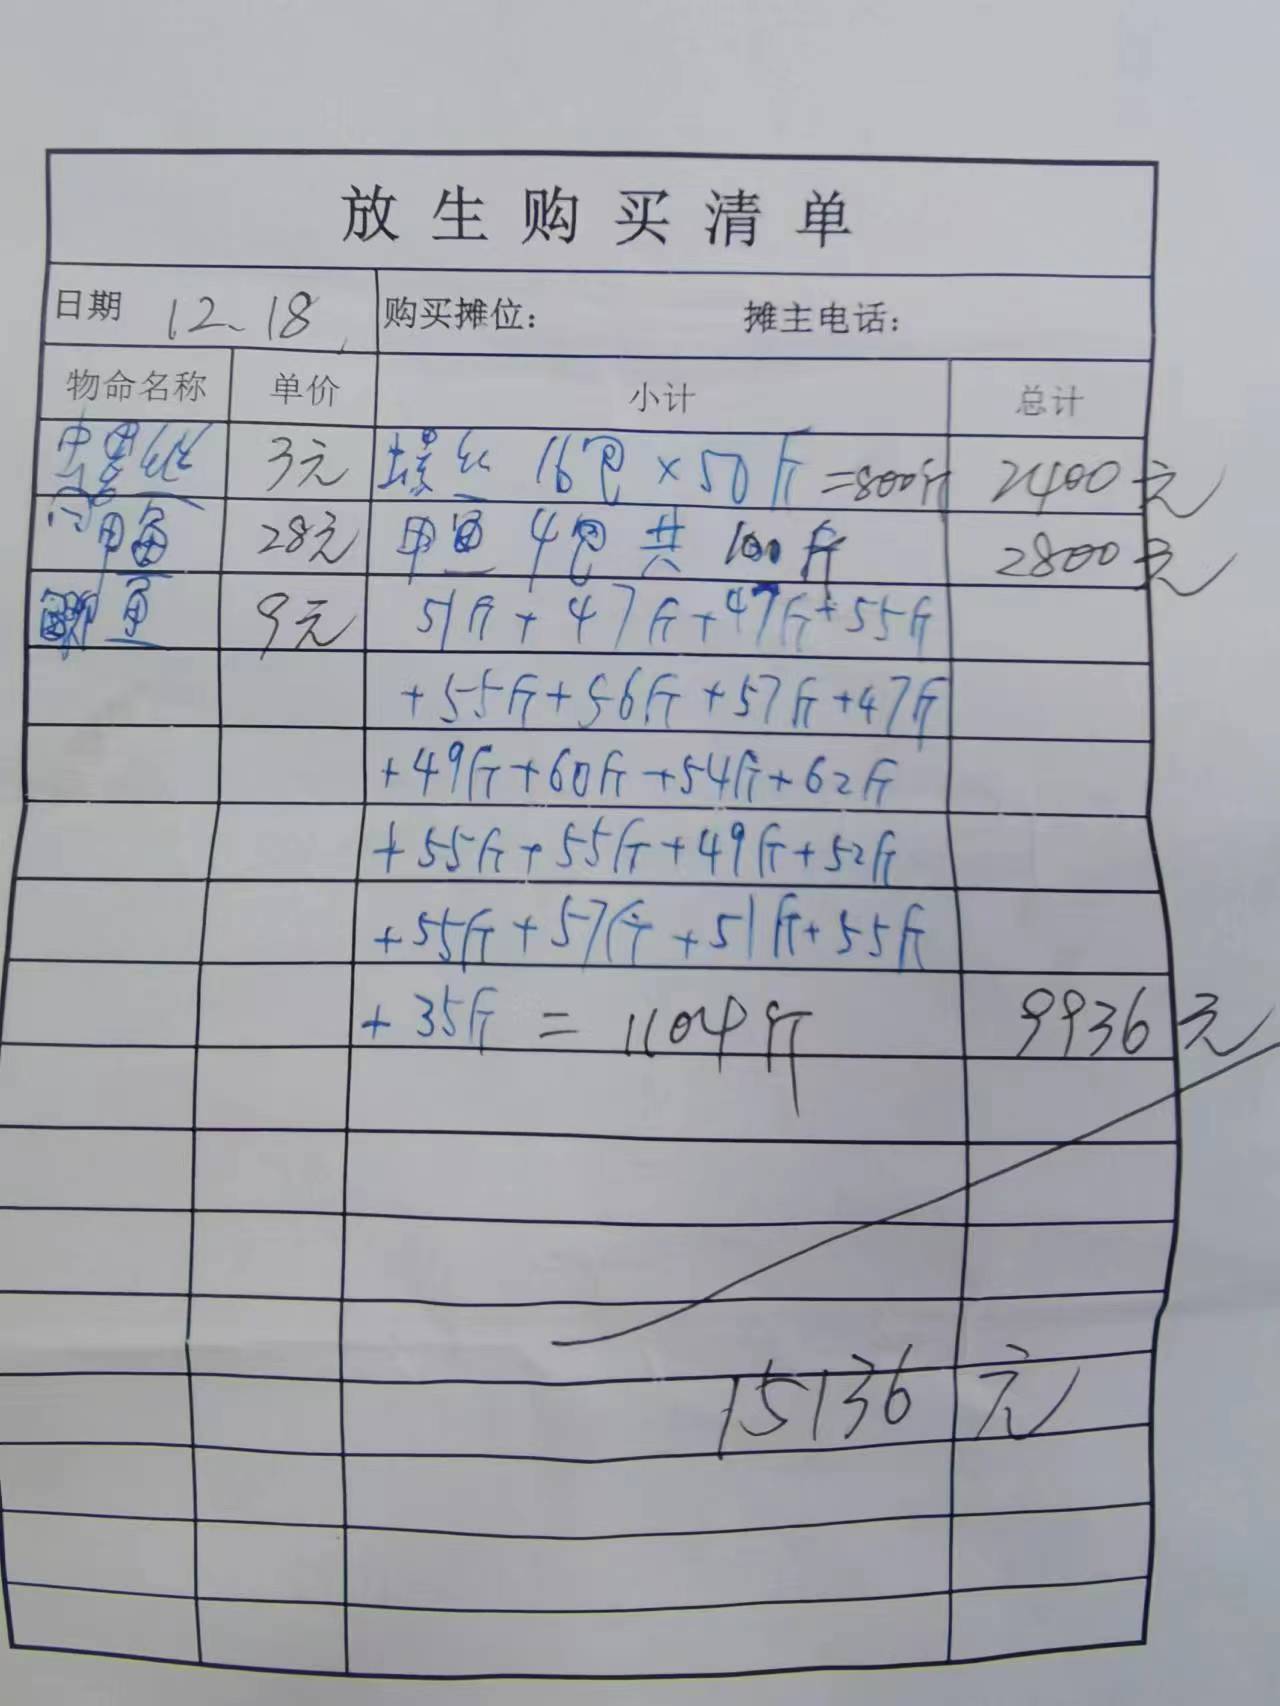 放生购买清单
日期 12、18 购买摊位： 摊主电话：
物命名称 单价 小计 总计
3元 螺丝 16包 × 50斤 = 800斤 2400元
甲鱼 28元 甲鱼 4包 共 100斤 2800元
鱼 9元 51斤 + 47斤 + 47斤 + 55斤
+ 55斤 + 56斤 + 57斤 + 47斤
+ 49斤 + 60斤 + 54斤 + 62斤
+ 55斤 + 55斤 + 49斤 + 52斤
+ 55斤 + 57斤 + 51斤 + 55斤
+ 35斤 = 1104斤 9936元
15136元